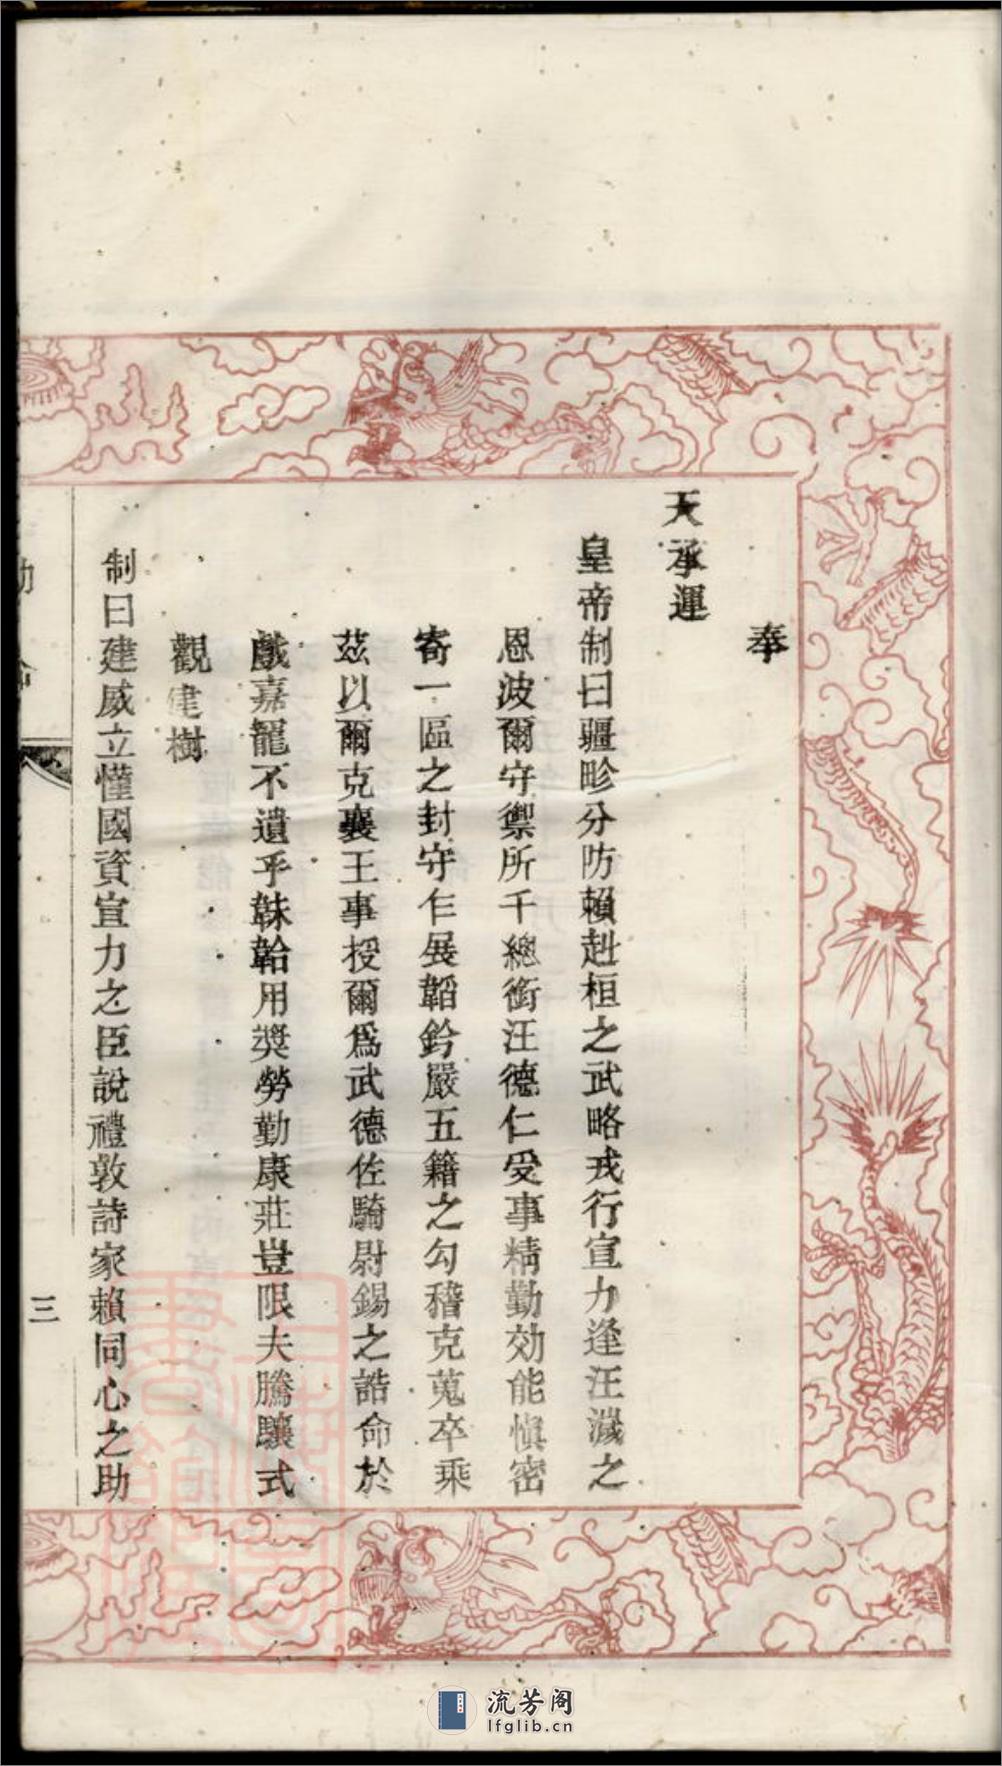 奉
天承運
皇帝制曰疆畛分防賴赳桓之武略戎行宣力逢汪濊之
恩波爾守禦所千總銜汪德仁受事精勤効能慎密
寄一區之封守乍展韜鈐嚴五籍之勾稽克蒐卒乘
茲以爾克襄王事授爾爲武德佐騎尉錫之誥命於
戲嘉寵不遺乎韎韐用奬勞勤康莊豈限夫騰驤式
觀建樹
制曰建威立懂國資宣力之臣說禮敦詩家賴同心之助
三
流芳阁
lfglib.cn